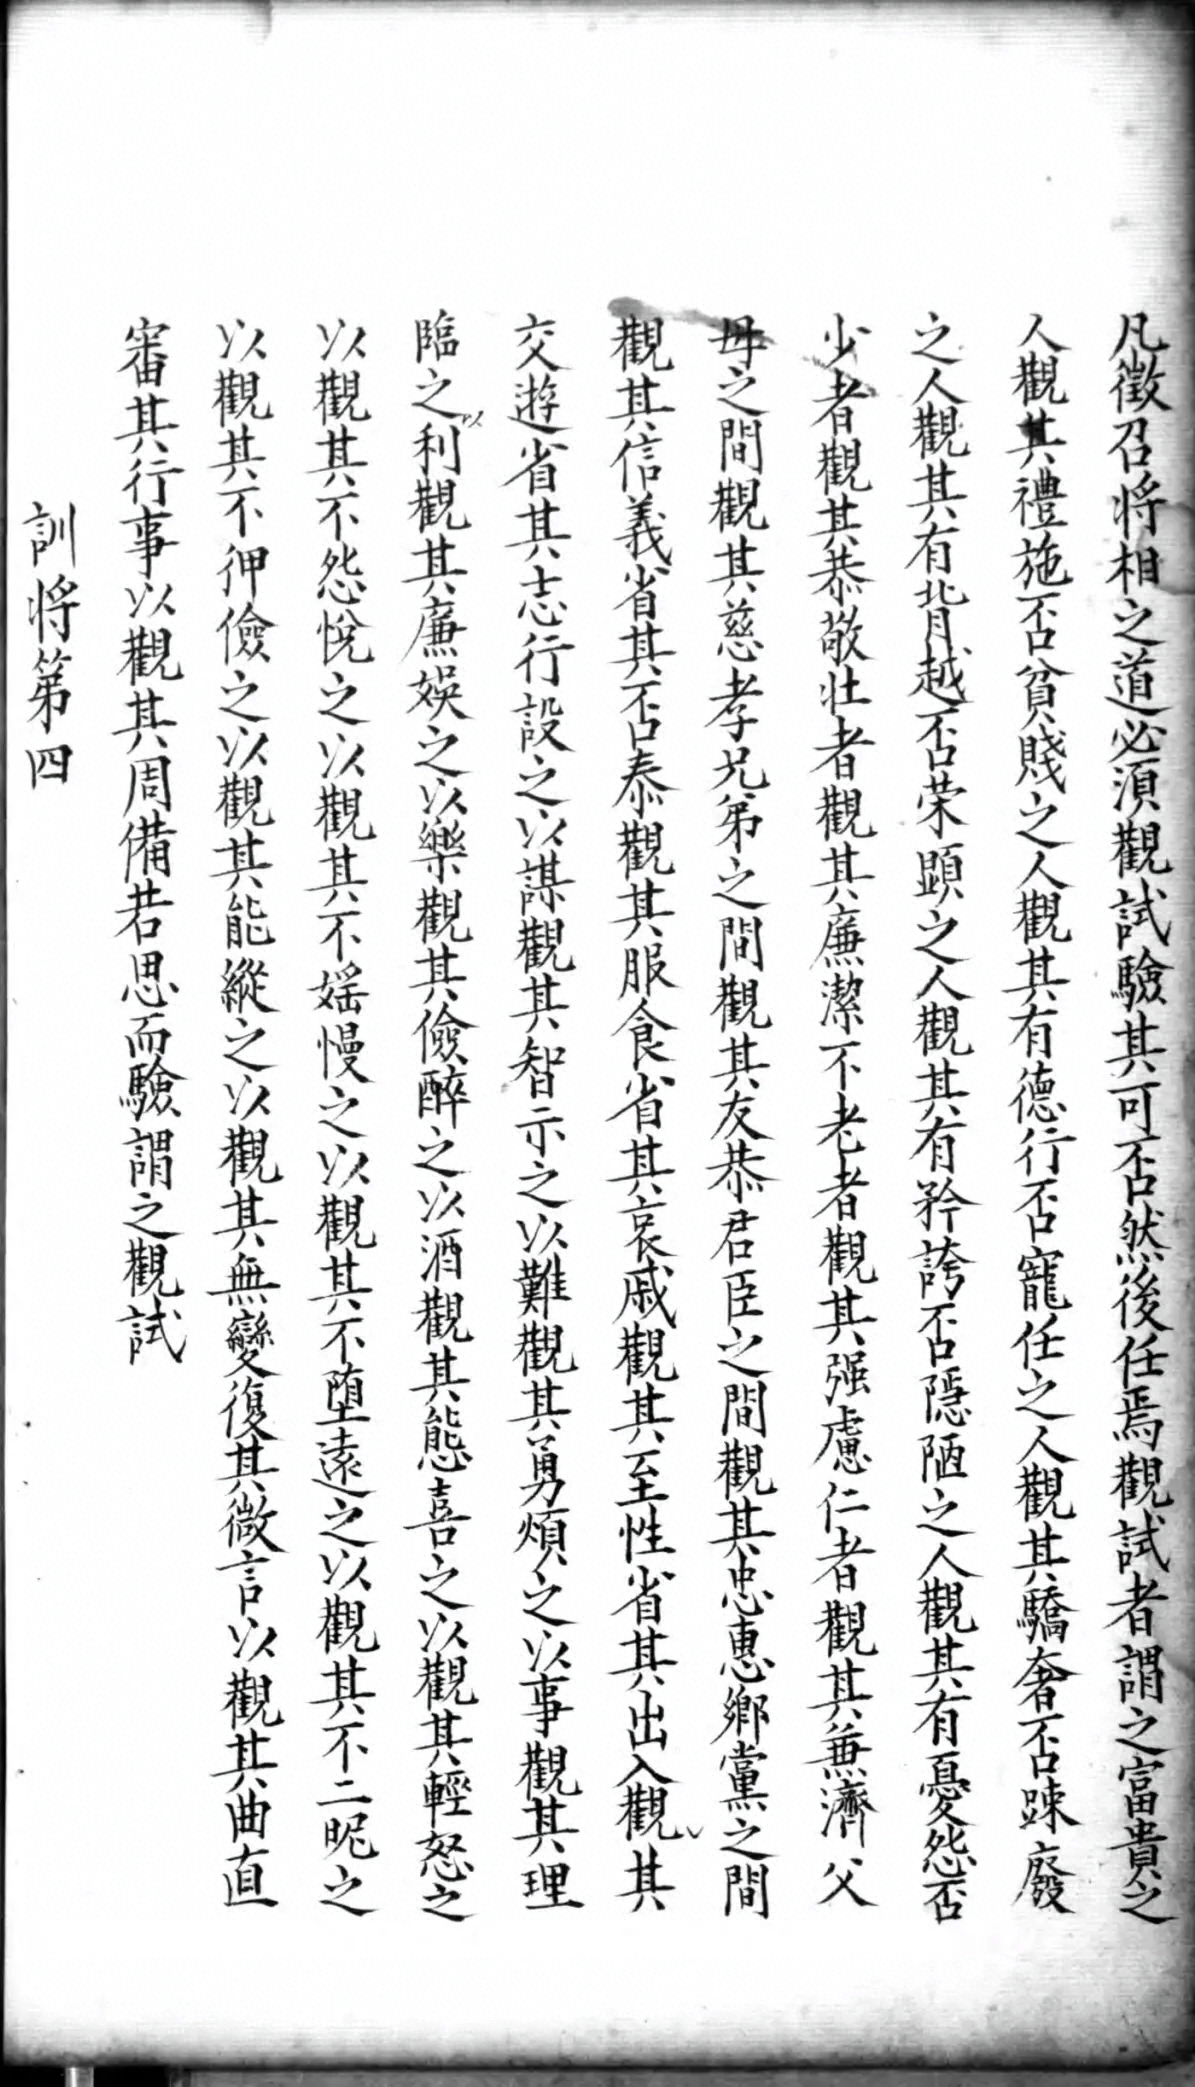 凡徵召将相之道必湏觀試驗其可否然後任焉觀試者謂之富貴之
人觀其禮施否貧賤之人觀其有德行否寵任之人觀其驕奢否踈廢
之人觀其有背越否荣顕之人觀其有矜誇否隱陋之人觀其有憂怨否
少者觀其恭敬壮者觀其廉潔不老者觀其强慮仁者觀其兼濟父
母之間觀其慈孝兄弟之間觀其友恭君臣之間觀其忠惠鄉黨之間
觀其信義省其否泰觀其服食省其哀戚觀其至性省其出入觀其
交遊省其志行設之以謀觀其智示之以難觀其勇煩之以事觀其理
臨之以利觀其廉娛之以樂觀其儉醉之以酒觀其態喜之以觀其輕怒之
以觀其不怨悅之以觀其不婬慢之以觀其不堕遠之以觀其不二昵之
以觀其不狎儉之以觀其能縱之以觀其無變復其微言以觀其曲直
審其行事以觀其周備若思而驗謂之觀試
訓将第四